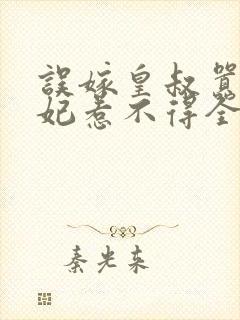 誤嫁皇叔
妃惹不得全
秦光